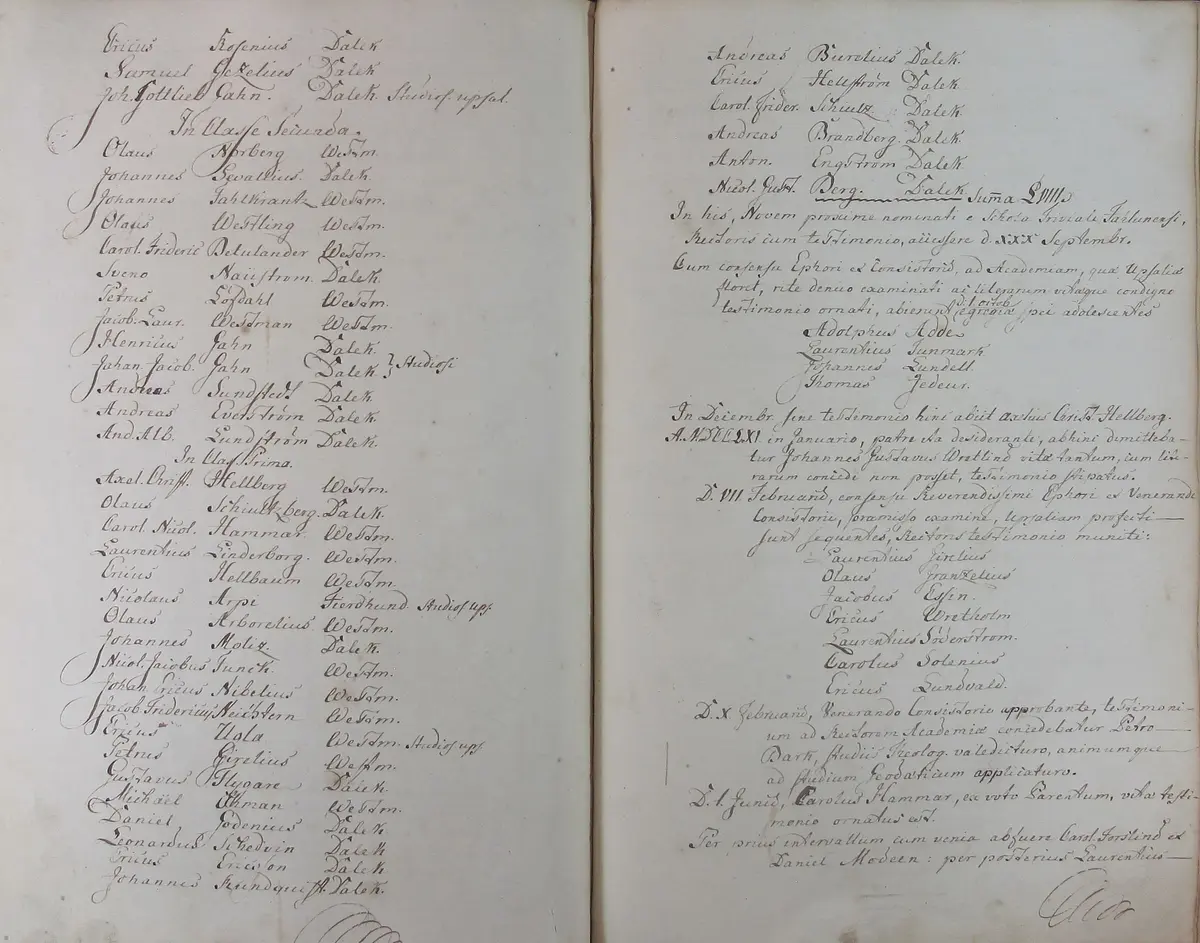 Ericus Rosenius Dalek
Samuel Gezelius Dalek
Joh. Gottlieb Gahn. Dalek. Studios. upsal.
In Classe Secunda.
Olaus Norberg Westm.
Johannes Sevallius Dalek.
Johannes Fahlkrantz Westm.
Olaus Westling Westm.
Carol. Frideric Betulander Westm.
Sveno Naüstrom. Dalek.
Petrus Löfdahl Westm.
Jacob. Laur. Westman Westm.
Henricus Gahn Dalek.
Johan. Jacob. Gahn Dalek } Studiosi
Andreas Sundstedt Dalek
Andreas Everström Dalek
And. Alb. Lundström Dalek.
In Class. Prima.
Axel. Christ. Hellberg Westm.
Olaus Schultzberg. Dalek.
Carol. Nicol. Hammar. Westm.
Laurentius Linderborg. Westm.
Ericus Hellbaum Westm.
Nicolaus Arpi Fierdhund. Studios ups.
Olaus Arborelius Westm.
Johannes Moliz. Dalek.
Nicol. Jacobus Funck. Westm.
Johan Ericus Nibelius Westm.
Jacob. Fridericus Neichtern Westm.
Ericus Ugla Westm. Studios ups
Petrus Girelius Westm.
Gustavus Flygare Dalek.
Michäel Öhman Westm.
Daniel Godenius Dalek
Leonardus Schedvin Dalek
Ericus Ericsson Dalek
Johannes Rundquist. Dalek.
Andreas Burelius Dalek.
Ericus Hellström Dalek.
Carol. Frider. Schultz Dalek.
Andreas Brandberg. Dalek.
Anton. Engström Dalek
Nicol. Gust. Berg. Dalek Summa LVIII.
In his, Novem proxime nominati e Schola Triviali Fahlunensi,
Rectoris cum testimonio, accessere d. XXX Septembr.
Cum consensu Ephori et Consistorii, ad Academiam, quæ Upsaliæ
floret, rite denuo examinati ac literarum vitæque condigno
d. 1. octob.
testimonio ornati, abierunt egregiæ spei adolescentes
Adolphus Adde
Laurentius Junmark
Johannes Lundell
Thomas Fedeur.
In Decembr. sine testimonio hinc abiit Axelius Christ. Hellberg.
A. MDCCLXI in Januario, patre ita desiderante, abhinc dimitteba-
tur Johannes Gustavus Wretlind vitæ tantum, cum lite-
rarum concedi non posset, testimonio stipatus.
D. VII Februarii, consensu Reverendissimi Ephori et Venerandi
Consistorii, præmisso examine, Upsaliam profecti
sunt sequentes, Rectoris testimonio muniti:
Laurentius Girelius
Olaus Franzelius
Jacobus Essen.
Ericus Wretholm
Laurentius Söderstrom.
Carolus Solenius
Ericus Lundvald.
D. X. Februarii, Venerando Consistorio approbante, testimoni-
um ad Rectorem Academiæ concedebatur Petro
Bark, studiis theolog. valedicturo, animumque
ad studium Geodæticum applicaturo.
D. 1. Junii, Carolus Hammar, ex voto Parentum, vitæ testi-
monio ornatus est.
Per prius intervallum cum venia abfuere Carol. Forslind et
Daniel Modeen: per posterius Laurentius